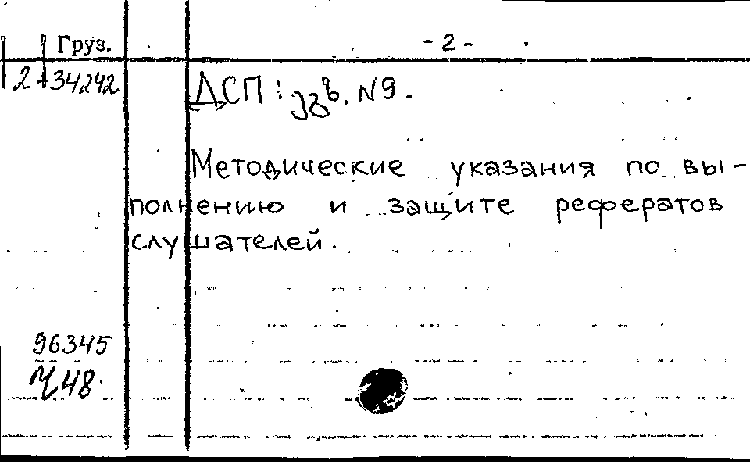 Груз. - 2 -
2 34242 ДСП: экз. №9.
Методические указания по вы-
полнению и защите рефератов
слушателей.
96345
Ч48.